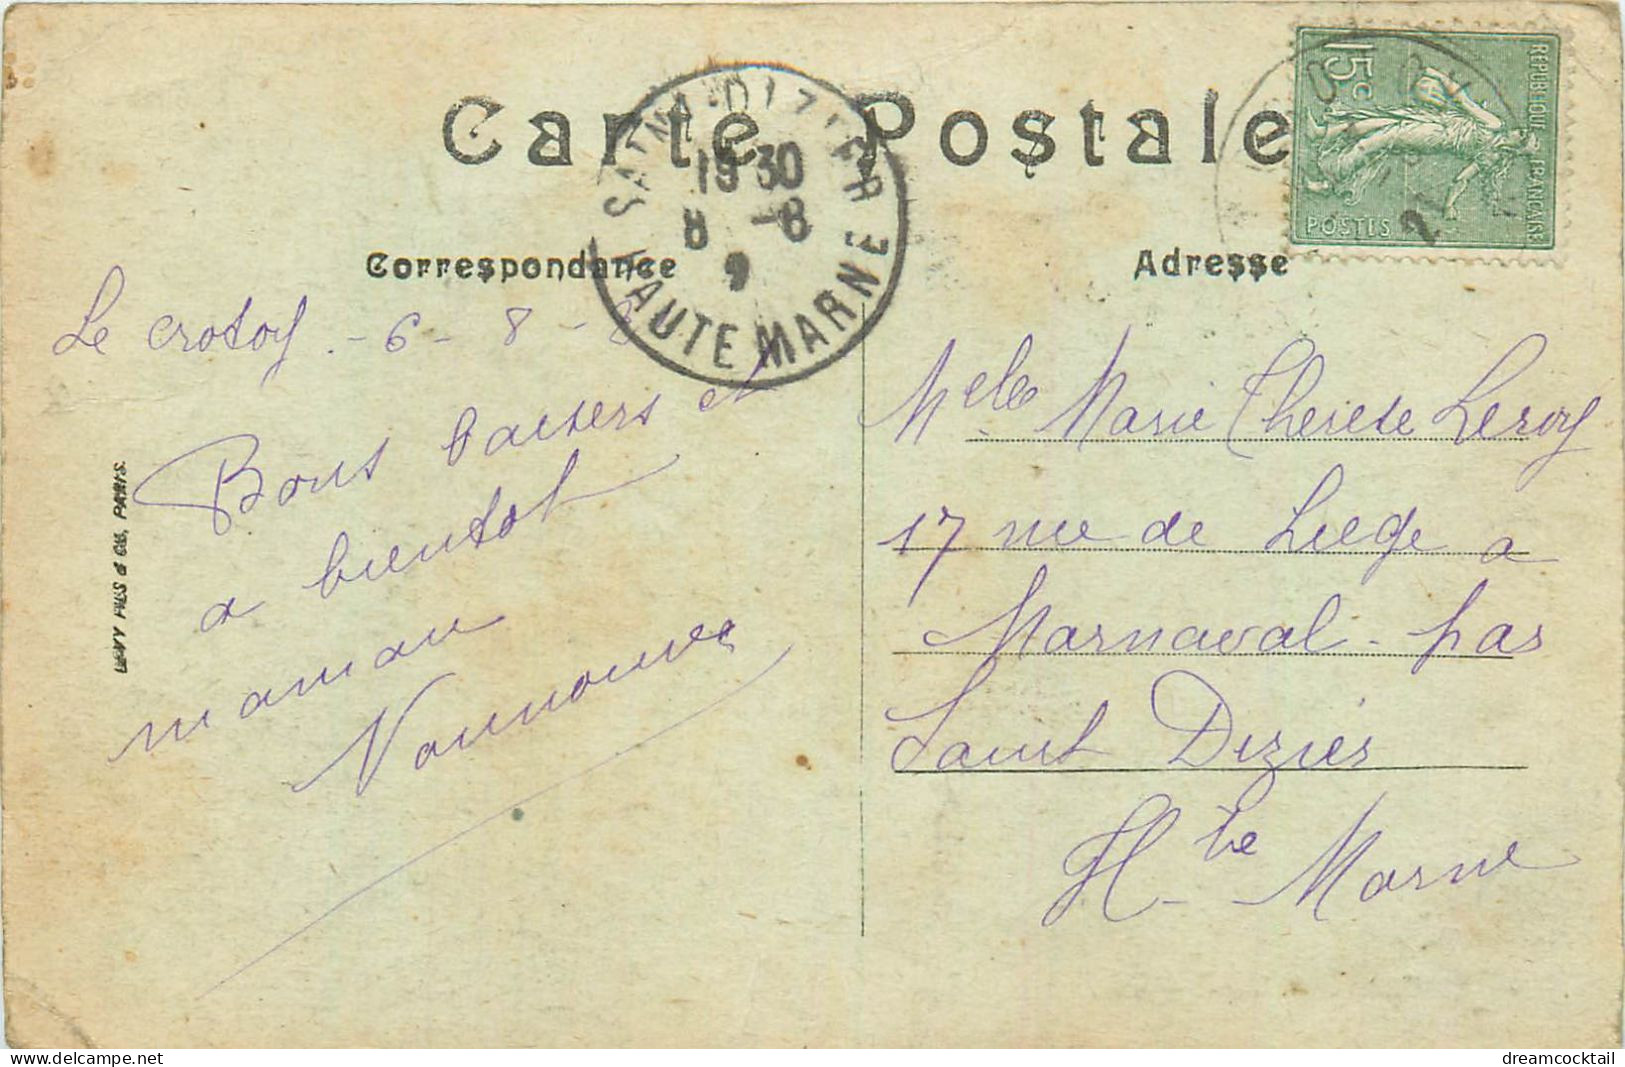 Carte Postale
REPUBLIQUE FRANÇAISE
15c
POSTES
SAINT-DIZIER
19 30
8 -8
HAUTE MARNE
Correspondance
Adresse
Le Crotoy - 6 - 8 -
Bons baisers et
a bientot
maman
LEVY FILS & Cie, PARIS.
Melle Marie Therese Leroy
17 rue de Liege a
Marnaval - pas
Saint Dizier
Hte Marne
dreamcocktail